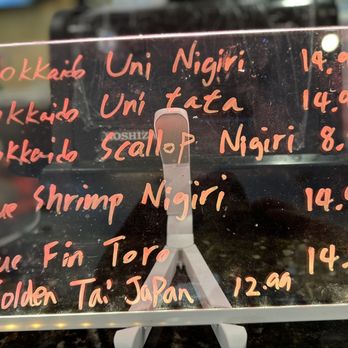 okkaido Uni Nigiri 14.9
okkaido Uni tata 14.9
HOSHIZ
okkaido Scallop Nigiri 8.
ue Shrimp Nigiri 14.9
ue Fin Toro 14.
Golden Tai Japan 12.99